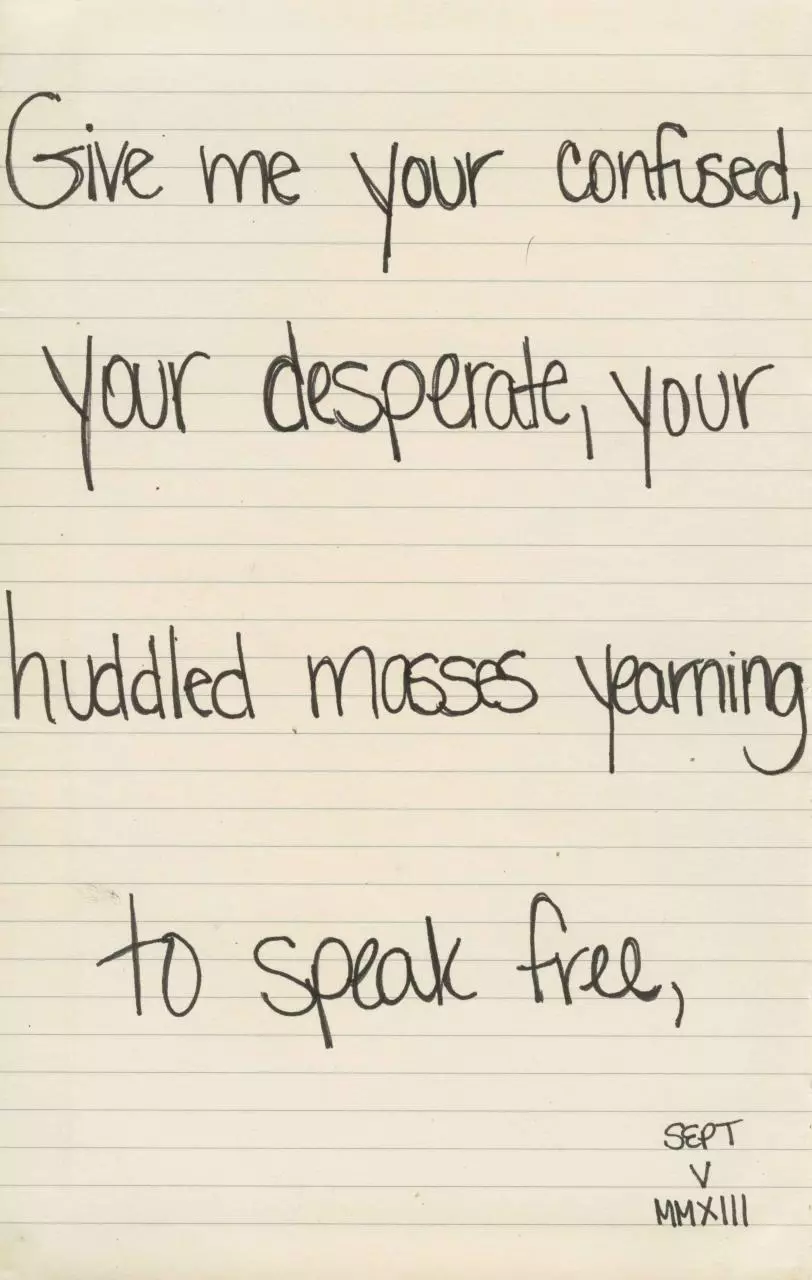 Give me your confused,
your desperate, your
huddled masses yearning
to speak free,
SEPT
V
MMXIII